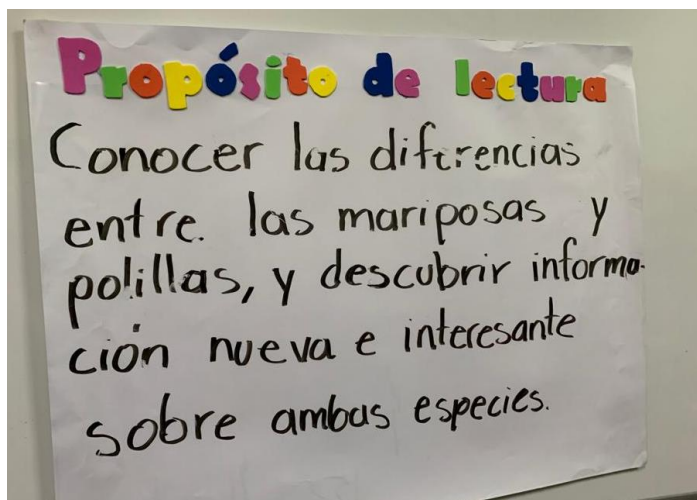 Propósito de lectura
Conocer las diferencias
entre. las mariposas y
polillas, y descubrir informa-
ción nueva e interesante
sobre ambas especies.